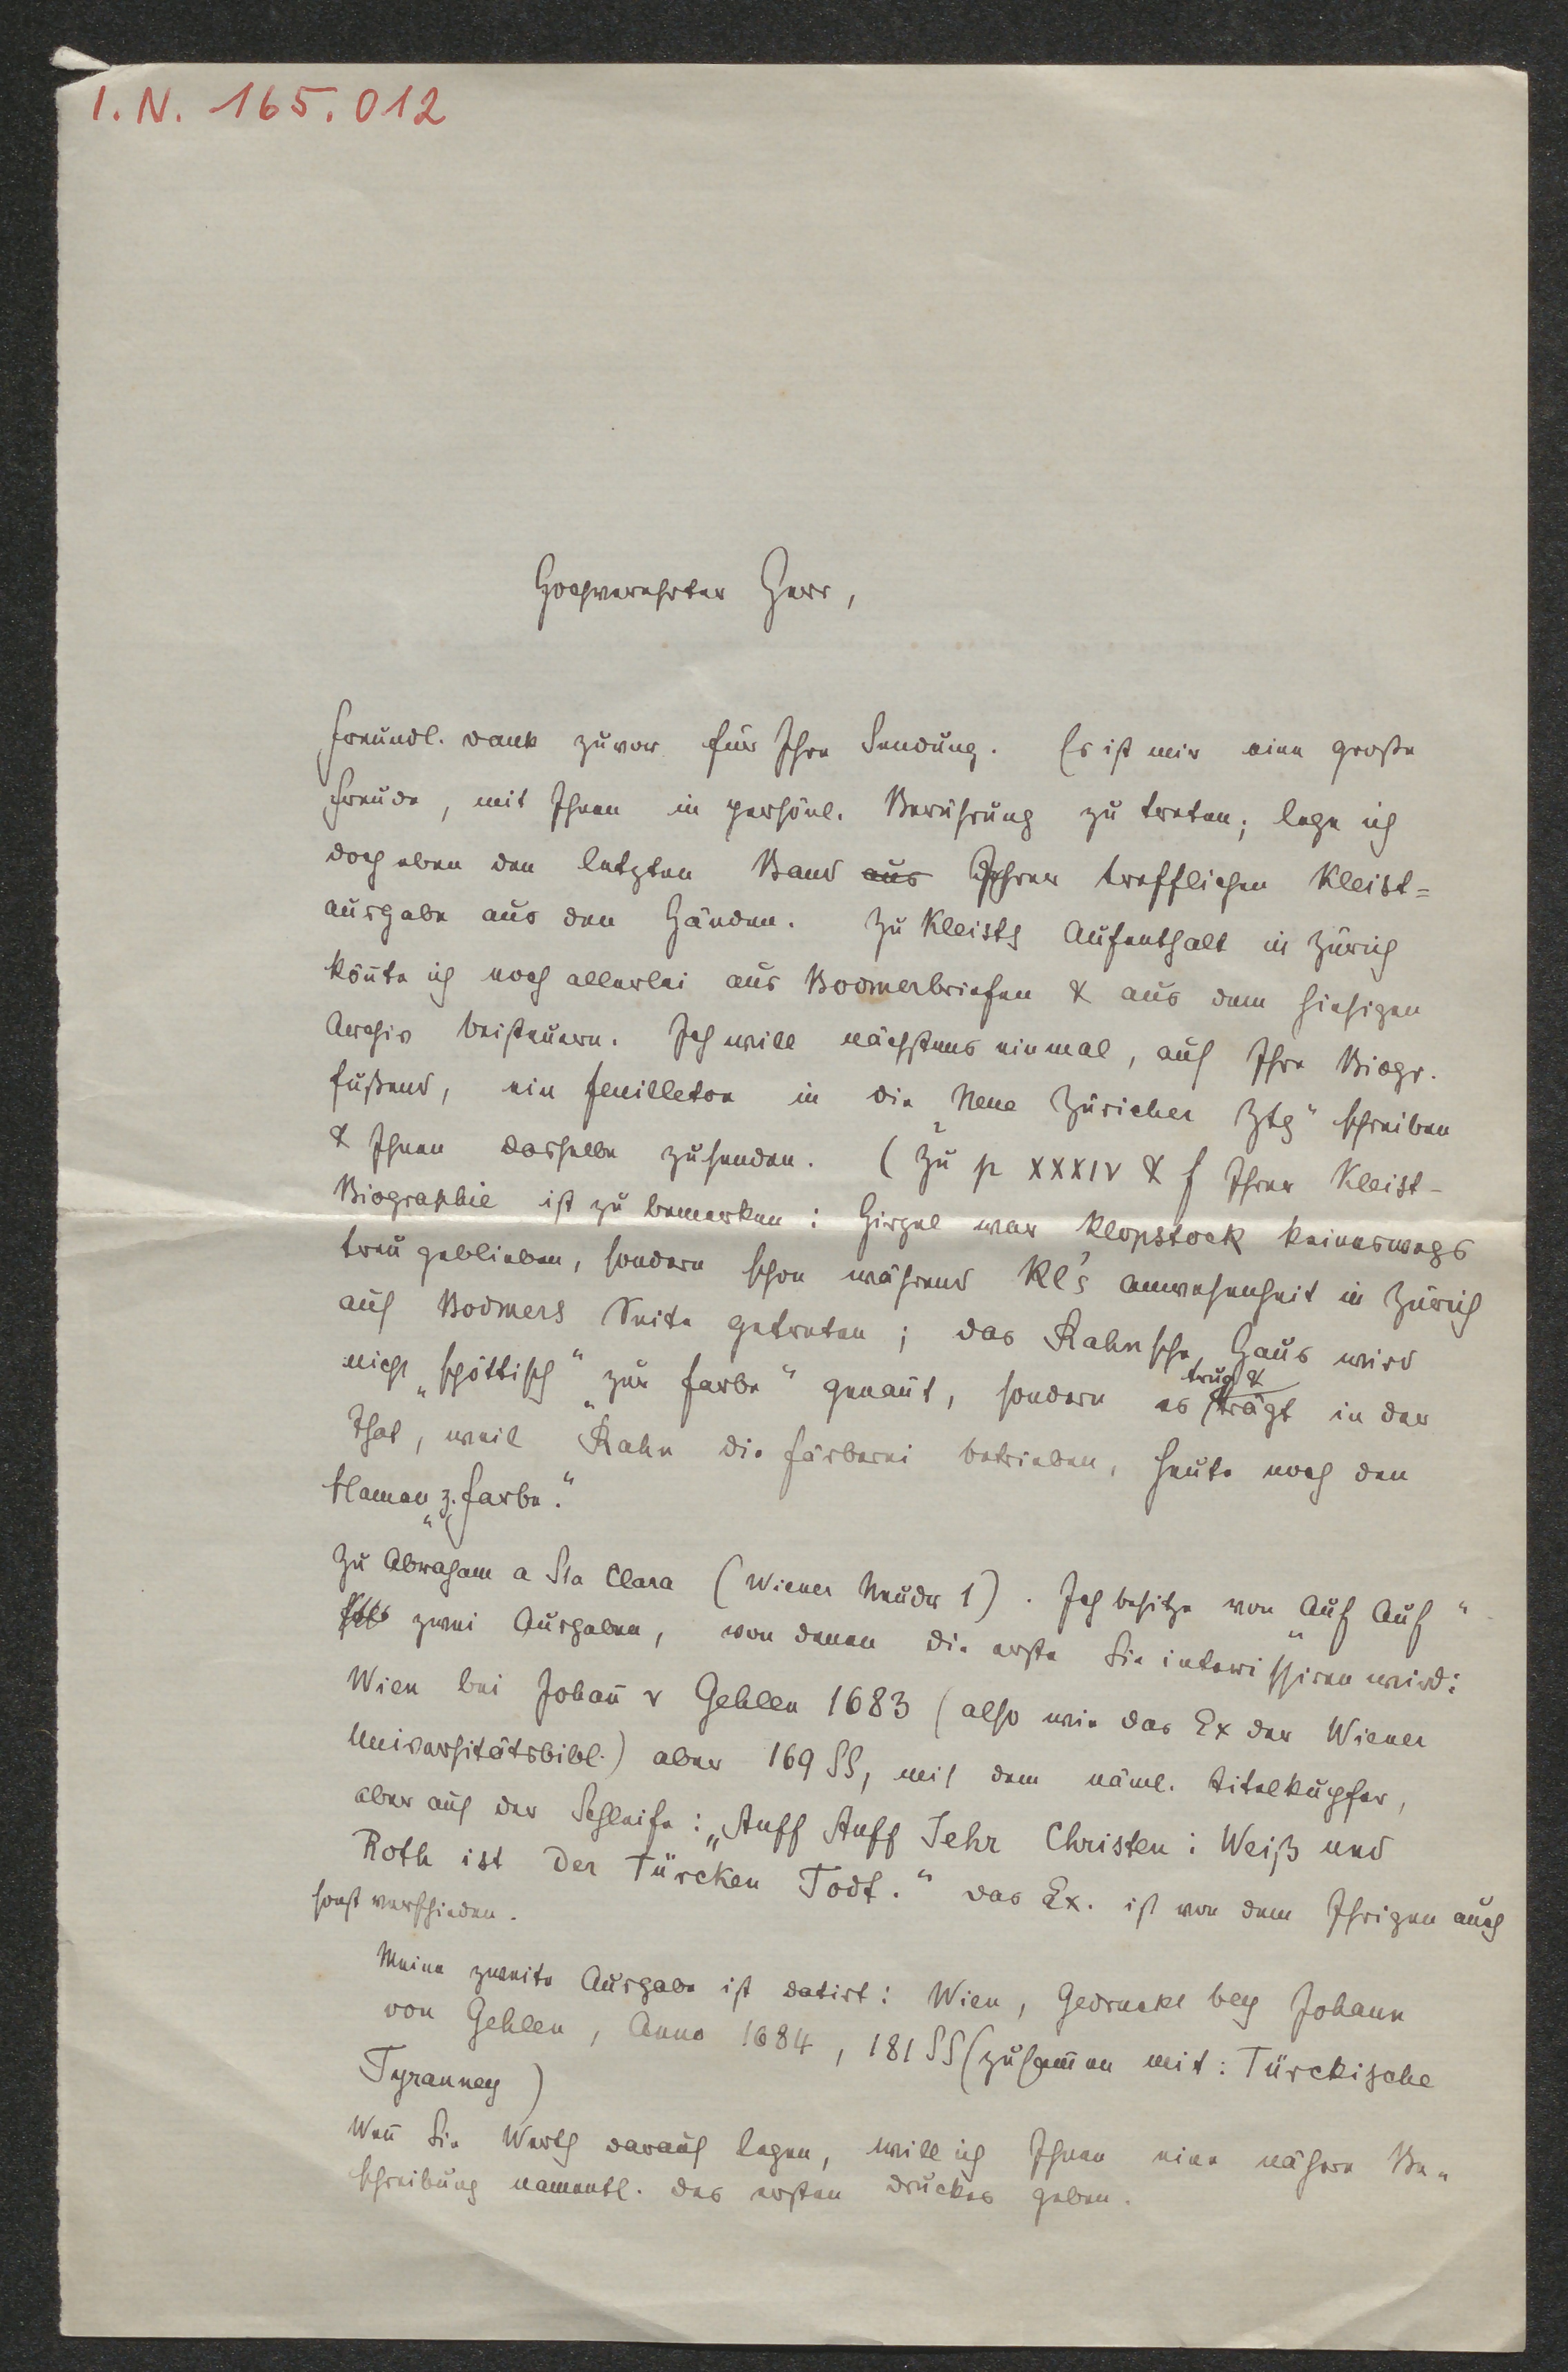 I.N. 165.012
Hochverehrter Herr,
Freundl. Dank zuvor für Ihre Sendung. Es ist mir eine große
Freude, mit Ihnen in persönl. Berührung zu treten; lege ich
doch eben den letzten Band aus Ihrer trefflichen Kleist=
ausgabe aus den Händen. Zu Kleists Aufenthalt in Zürich
kön̄te ich noch allerlei aus Bodmerbriefen & aus dem hiesigen
Archiv beisteuern. Ich will nächstens einmal, auf Ihre Biogr.
fußend, ein Feuilleton in die „Neue Züricher Ztg“ schreiben
& Ihnen dasselbe zusenden. (Zu p XXXIV & f Ihrer Kleist-
Biographie ist zu bemerken: Hirzel war Klopstock keineswegs
treu geblieben, sondern schon während Kl's Anwesenheit in Zürich
auf Bodmers Seite getreten; das Rahnsche Haus wird
nicht „spöttisch“ „zur Farbe“ genan̄t, sondern es trug & trägt in der
That, weil Rahn die Färberei betrieben, heute noch den
Namen „z. Farbe.“
Zu Abraham a Sta Clara (Wiener Neudr 1). Ich besitze von „Auf Auf“
zwei Ausgaben, von denen die erste Sie interissiren wird:
Wien bei Johan̄ v Gehlen 1683 (also wie das Ex der Wiener
Universitätsbibl.) aber 169 SS, mit dem näml. Titelkupfer,
aber auf der Schleife: „Auff Auff Jehr Christen: Weiß und
Roth ist Der Türcken Todt.“ Das Ex. ist von dem Ihrigen auch
sonst verschieden.
Meine zweite Ausgabe ist datirt: Wien, Gedruckt bey Johann
von Gehlen, Anno 1684, 181 SS (zusam̄en mit: Türckische
Tyranney)
Wen̄ Sie Werth darauf legen, will ich Ihnen eine nähere Be=
schreibung namentl. des ersten Druckes geben.